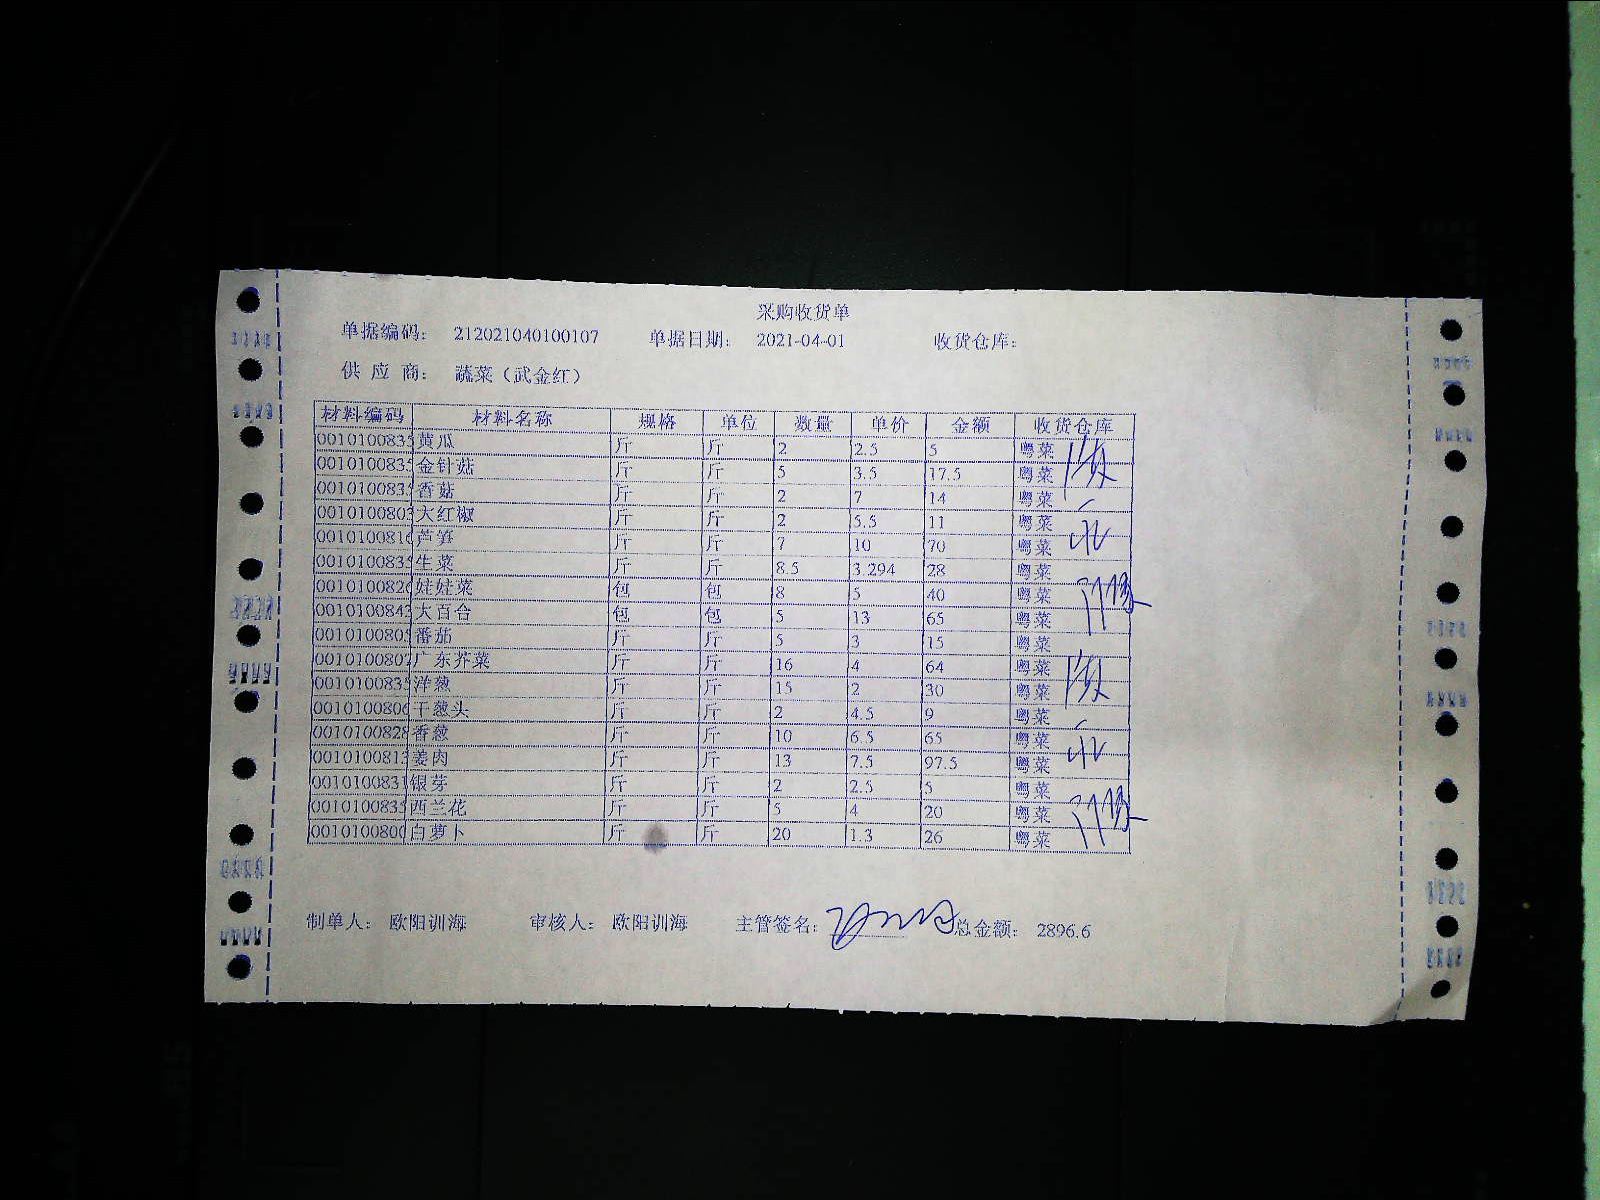 采购收货单
单据编码： 212021040100107 单据日期： 2021-04-01 收货仓库：
供 应 商： 蔬菜（武金红）
材料编码 材料名称 规格 单位 数量 单价 金额 收货仓库
0010100835 黄瓜 斤 斤 2 2.5 5 粤菜
0010100835 金针菇 斤 斤 5 3.5 17.5 粤菜
0010100835 香菇 斤 斤 2 7 14 粤菜
0010100803 大红椒 斤 斤 2 5.5 11 粤菜
001010081 芦笋 斤 斤 7 10 70 粤菜
0010100835 生菜 斤 斤 8.5 3.294 28 粤菜
001010082 娃娃菜 包 包 8 5 40 粤菜
001010084 大百合 包 包 5 13 65 粤菜
001010080 番茄 斤 斤 5 3 15 粤菜
001010080 广东芥菜 斤 斤 16 4 64 粤菜
001010083 洋葱 斤 斤 15 2 30 粤菜
001010080 干葱头 斤 斤 2 4.5 9 粤菜
0010100828 香葱 斤 斤 10 6.5 65 粤菜
001010081 姜肉 斤 斤 13 7.5 97.5 粤菜
001010083 银芽 斤 斤 2 2.5 5 粤菜
001010083 西兰花 斤 斤 5 4 20 粤菜
001010080 白萝卜 斤 斤 20 1.3 26 粤菜
制单人： 欧阳训海 审核人： 欧阳训海 主管签名： 总金额： 2896.6